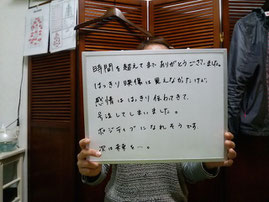 時間を超えてまで ありがとうございました。
はっきり映像は見えなかったけど、
感情は はっきり伝わってきて、
号泣してしまいました。
ポジティブに なれそうです。
次は を…。